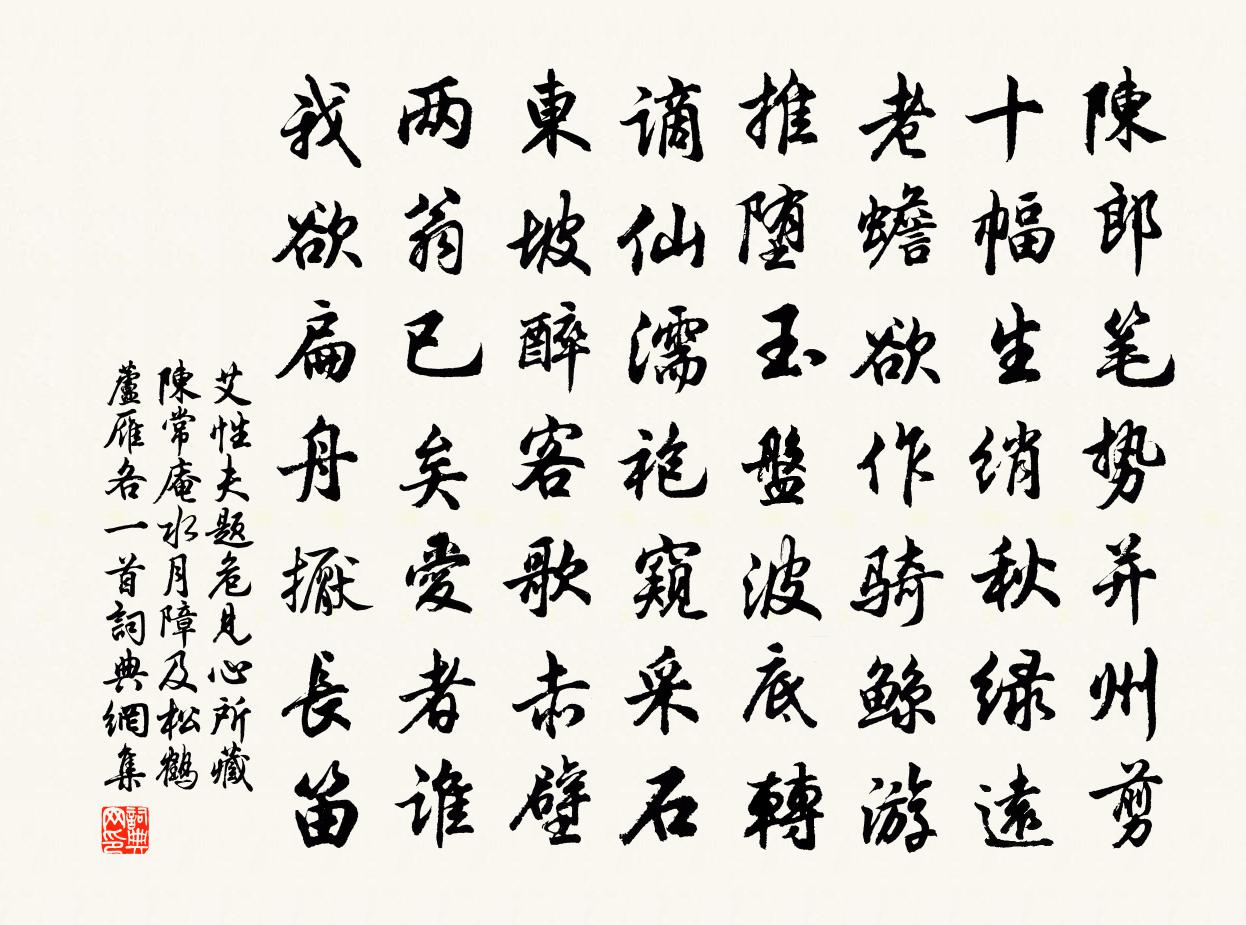 陳郎笔势并州剪
十幅生绡秋绿遠
老蟾欲作骑鲸游
推堕玉盤波底轉
谪仙濡袍窺采石
東坡醉客歌赤壁
两翁已矣愛者谁
我欲扁舟擫長笛
艾性夫題危見心所藏
陳常庵水月障及松鶴
蘆雁各一首詞典網集
詞典
网印